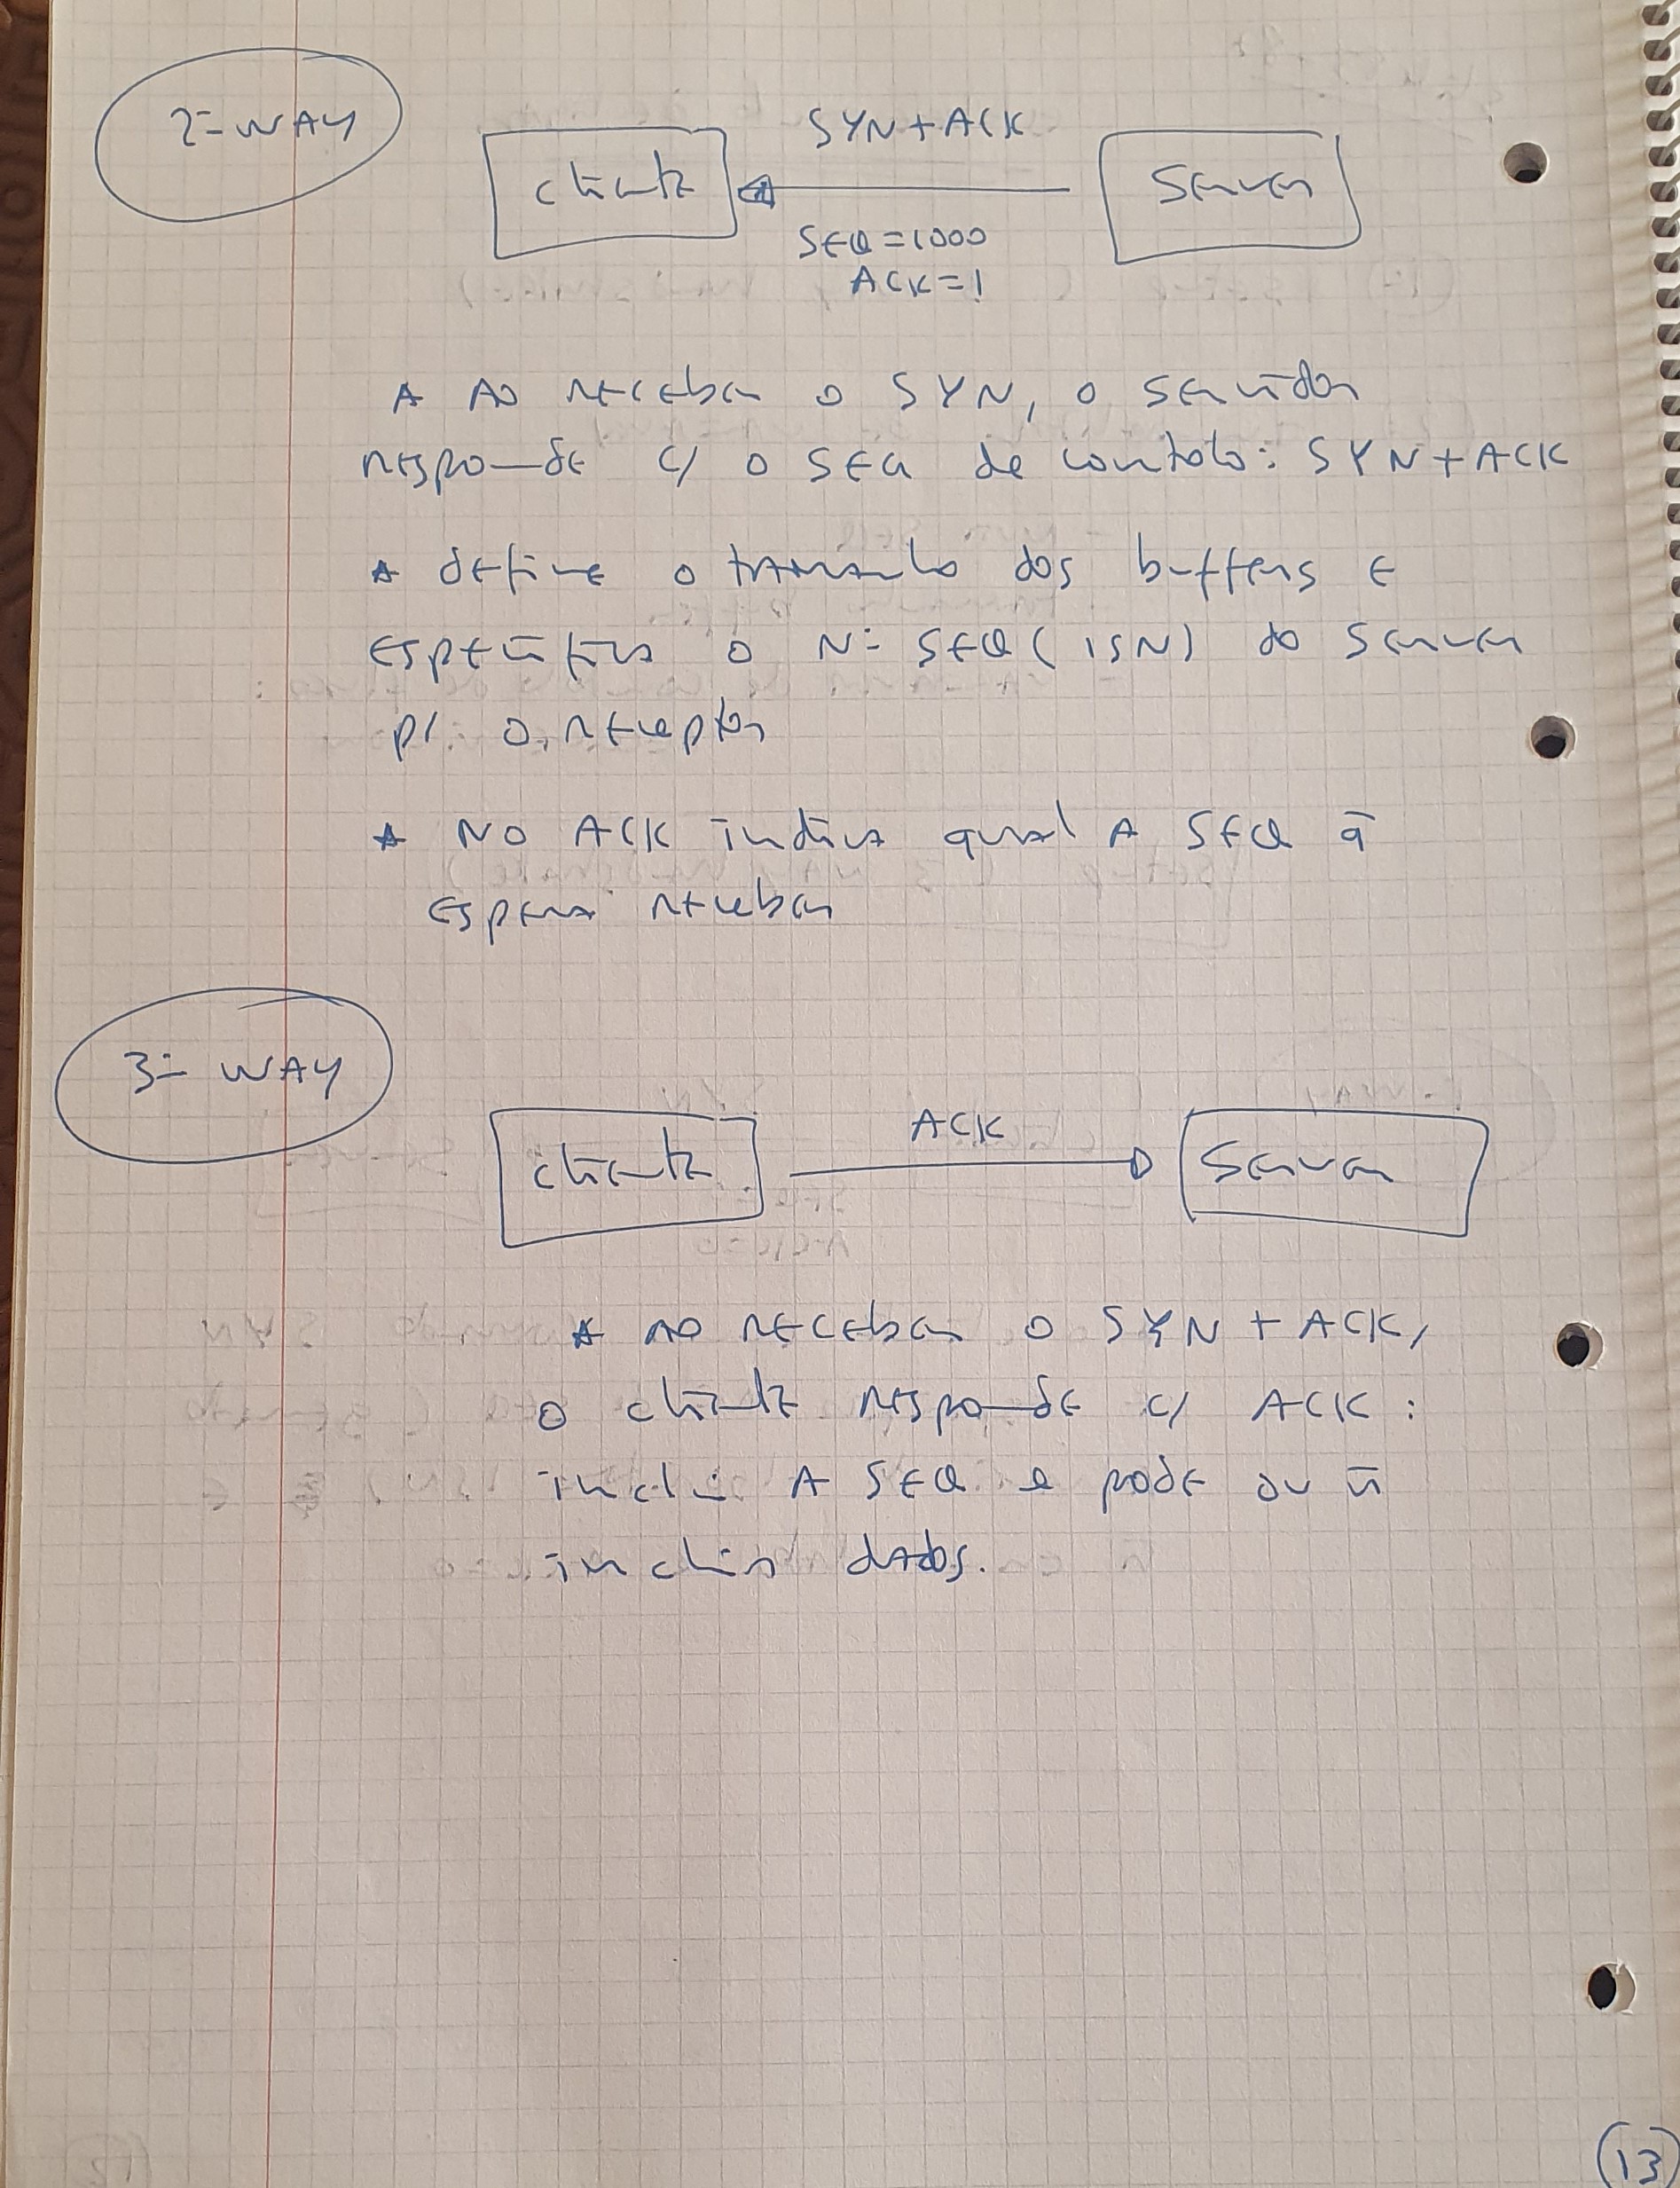 2º WAY
SYN+ACK
cliente
Server
SEQ=1000
ACK=1
* AO receber o SYN, o servidor
responde c/ o SEG de controlo: SYN+ACK
* define o tamanho dos buffers E
específica o Nº SEQ (ISN) do server
p/ o receptor
* NO ACK indica qual A SEQ q̃
espera receber
3º WAY
ACK
cliente
Server
* AO receber o SYN + ACK,
o cliente responde c/ ACK:
inclui A SEQ e pode ou ñ
incluir dados.
(13)